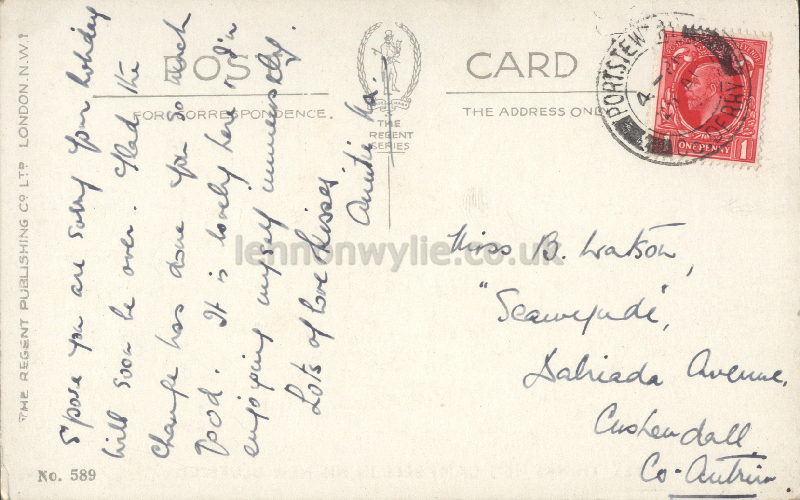 POST CARD
FOR CORRESPONDENCE.
THE ADDRESS ONLY
THE
REGENT
SERIES
THE REGENT PUBLISHING CO LTD LONDON. N.W.1
No. 589
PORTSTEWART
4-
DERRY
ONE PENNY
1 1
S'pose you are sorry your holiday
will soon be over. Glad the
change has done you so much
good. It is lovely here & I'm
enjoying myself immensely.
Lots of love & kisses
Auntie
Miss B. Watson,
Dalriada Avenue,
Cushendall
Co-Antrim
lennonwylie.co.uk